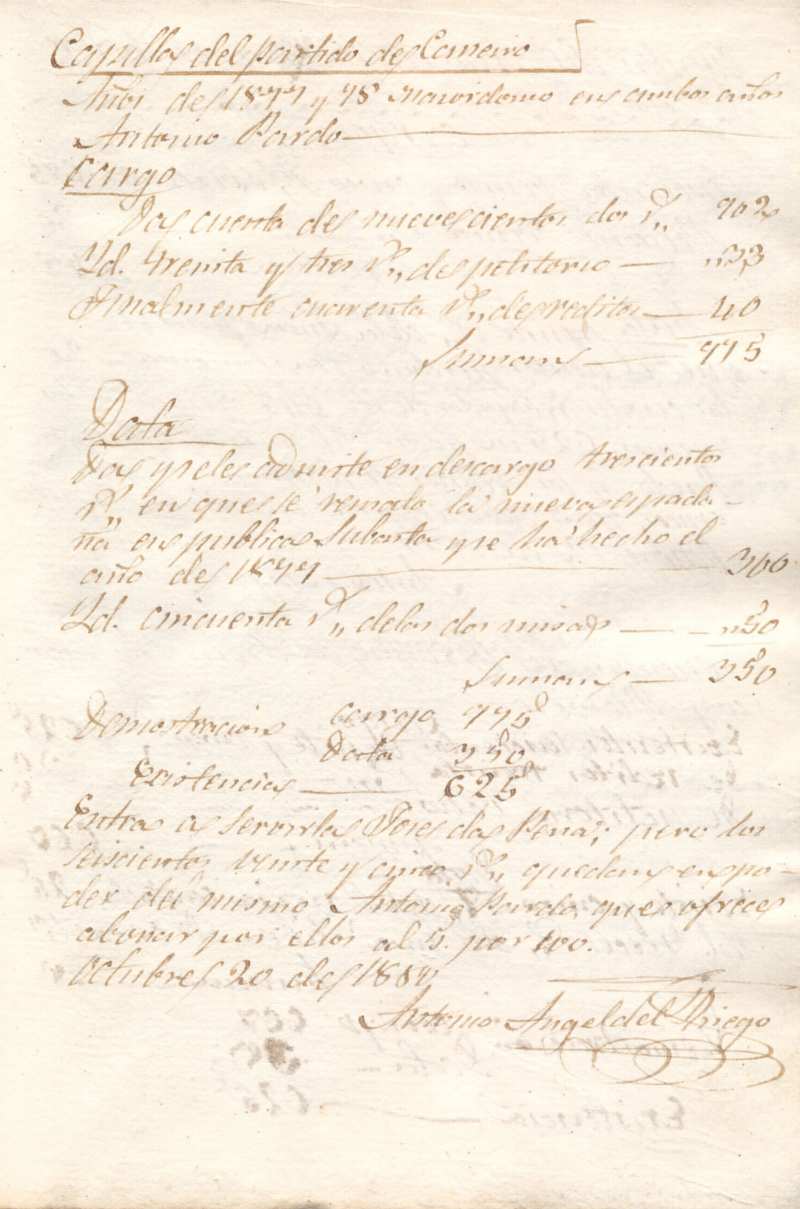 Capilla del partido de Carneiro
Años de 1877 y 78 Mayordomo en ambos años
Antonio Pardo
Cargo
Das cuenta de nuevecientos dos rs 902
Yd. treinta y tres rs de petitorio 33
Finalmente cuarenta rs de reditos 40
Suman 975
Data
Das y se les admite en descargo trescientos
rs en que se remató la nueva espada-
ña en publica Subasta y se ha hecho el
año de 1877 300
Yd. cincuenta rs de las dos misas 50
Suman 350
Demostracion Cargo 975
Data 350
Existencias 625
Entra a servirla Jose das Pena; pero los
seiscientos veinte y cinco rs quedan en po-
der del mismo Antonio Pardo, que ofrece
abonar por ellos al 5. por 100.
Octubre 20 de
Antonio Angel del Riego